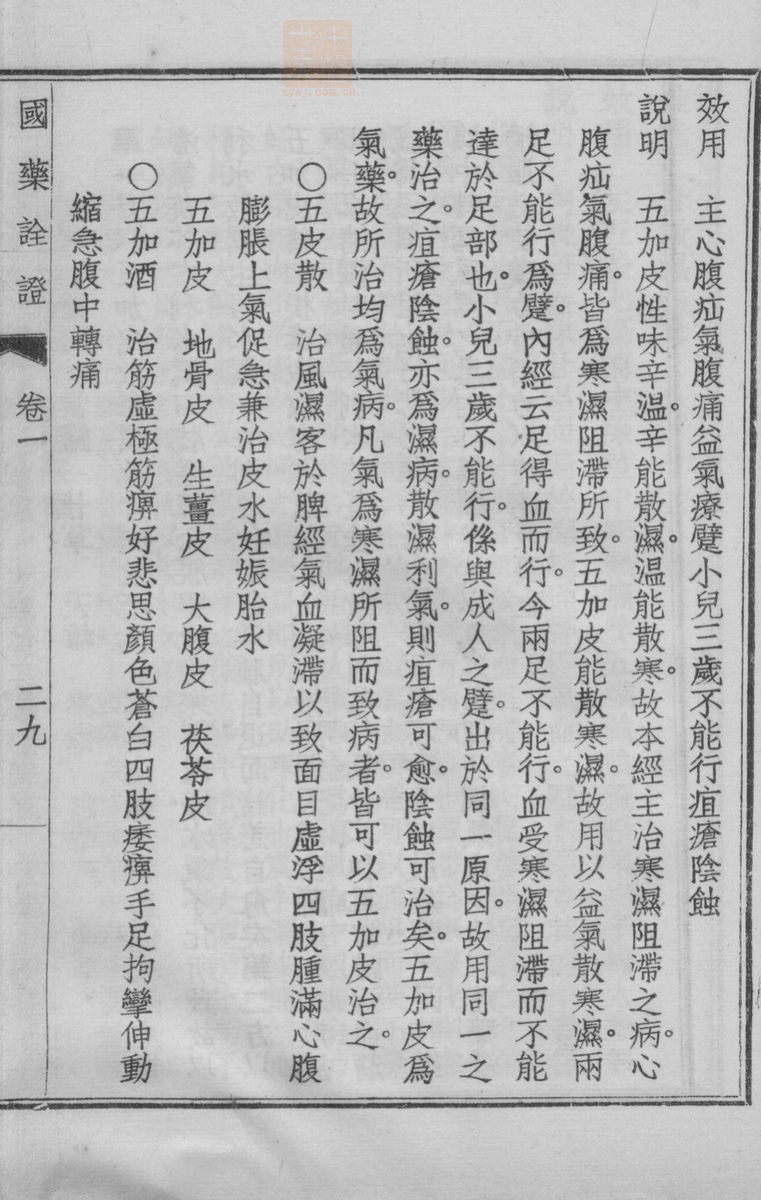 效用　主心腹疝氣腹痛益氣療躄小兒三歲不能行疽瘡陰蝕
說明　五加皮性味辛温。辛能散濕。温能散寒。故本經主治寒濕阻滯之病。心
腹疝氣腹痛。皆爲寒濕阻滯所致。五加皮能散寒濕。故用以益氣散寒濕。兩
足不能行爲躄。內經云足得血而行。今兩足不能行。血受寒濕阻滯而不能
達於足部也。小兒三歲不能行。係與成人之躄。出於同一原因。故用同一之
藥治之。疽瘡陰蝕。亦爲濕病。散濕利氣。則疽瘡可愈。陰蝕可治矣。五加皮爲
氣藥。故所治均爲氣病。凡氣爲寒濕所阻而致病者。皆可以五加皮治之。
○五皮散　治風濕客於脾經氣血凝滯以致面目虛浮四肢腫滿心腹
膨脹上氣促急兼治皮水妊娠胎水
五加皮　地骨皮　生薑皮　大腹皮　茯苓皮
○五加酒　治筋虛極筋痹好悲思顏色蒼白四肢痿痹手足拘攣伸動
縮急腹中轉痛
國藥詮證　卷一　二九
zysj.com.cn